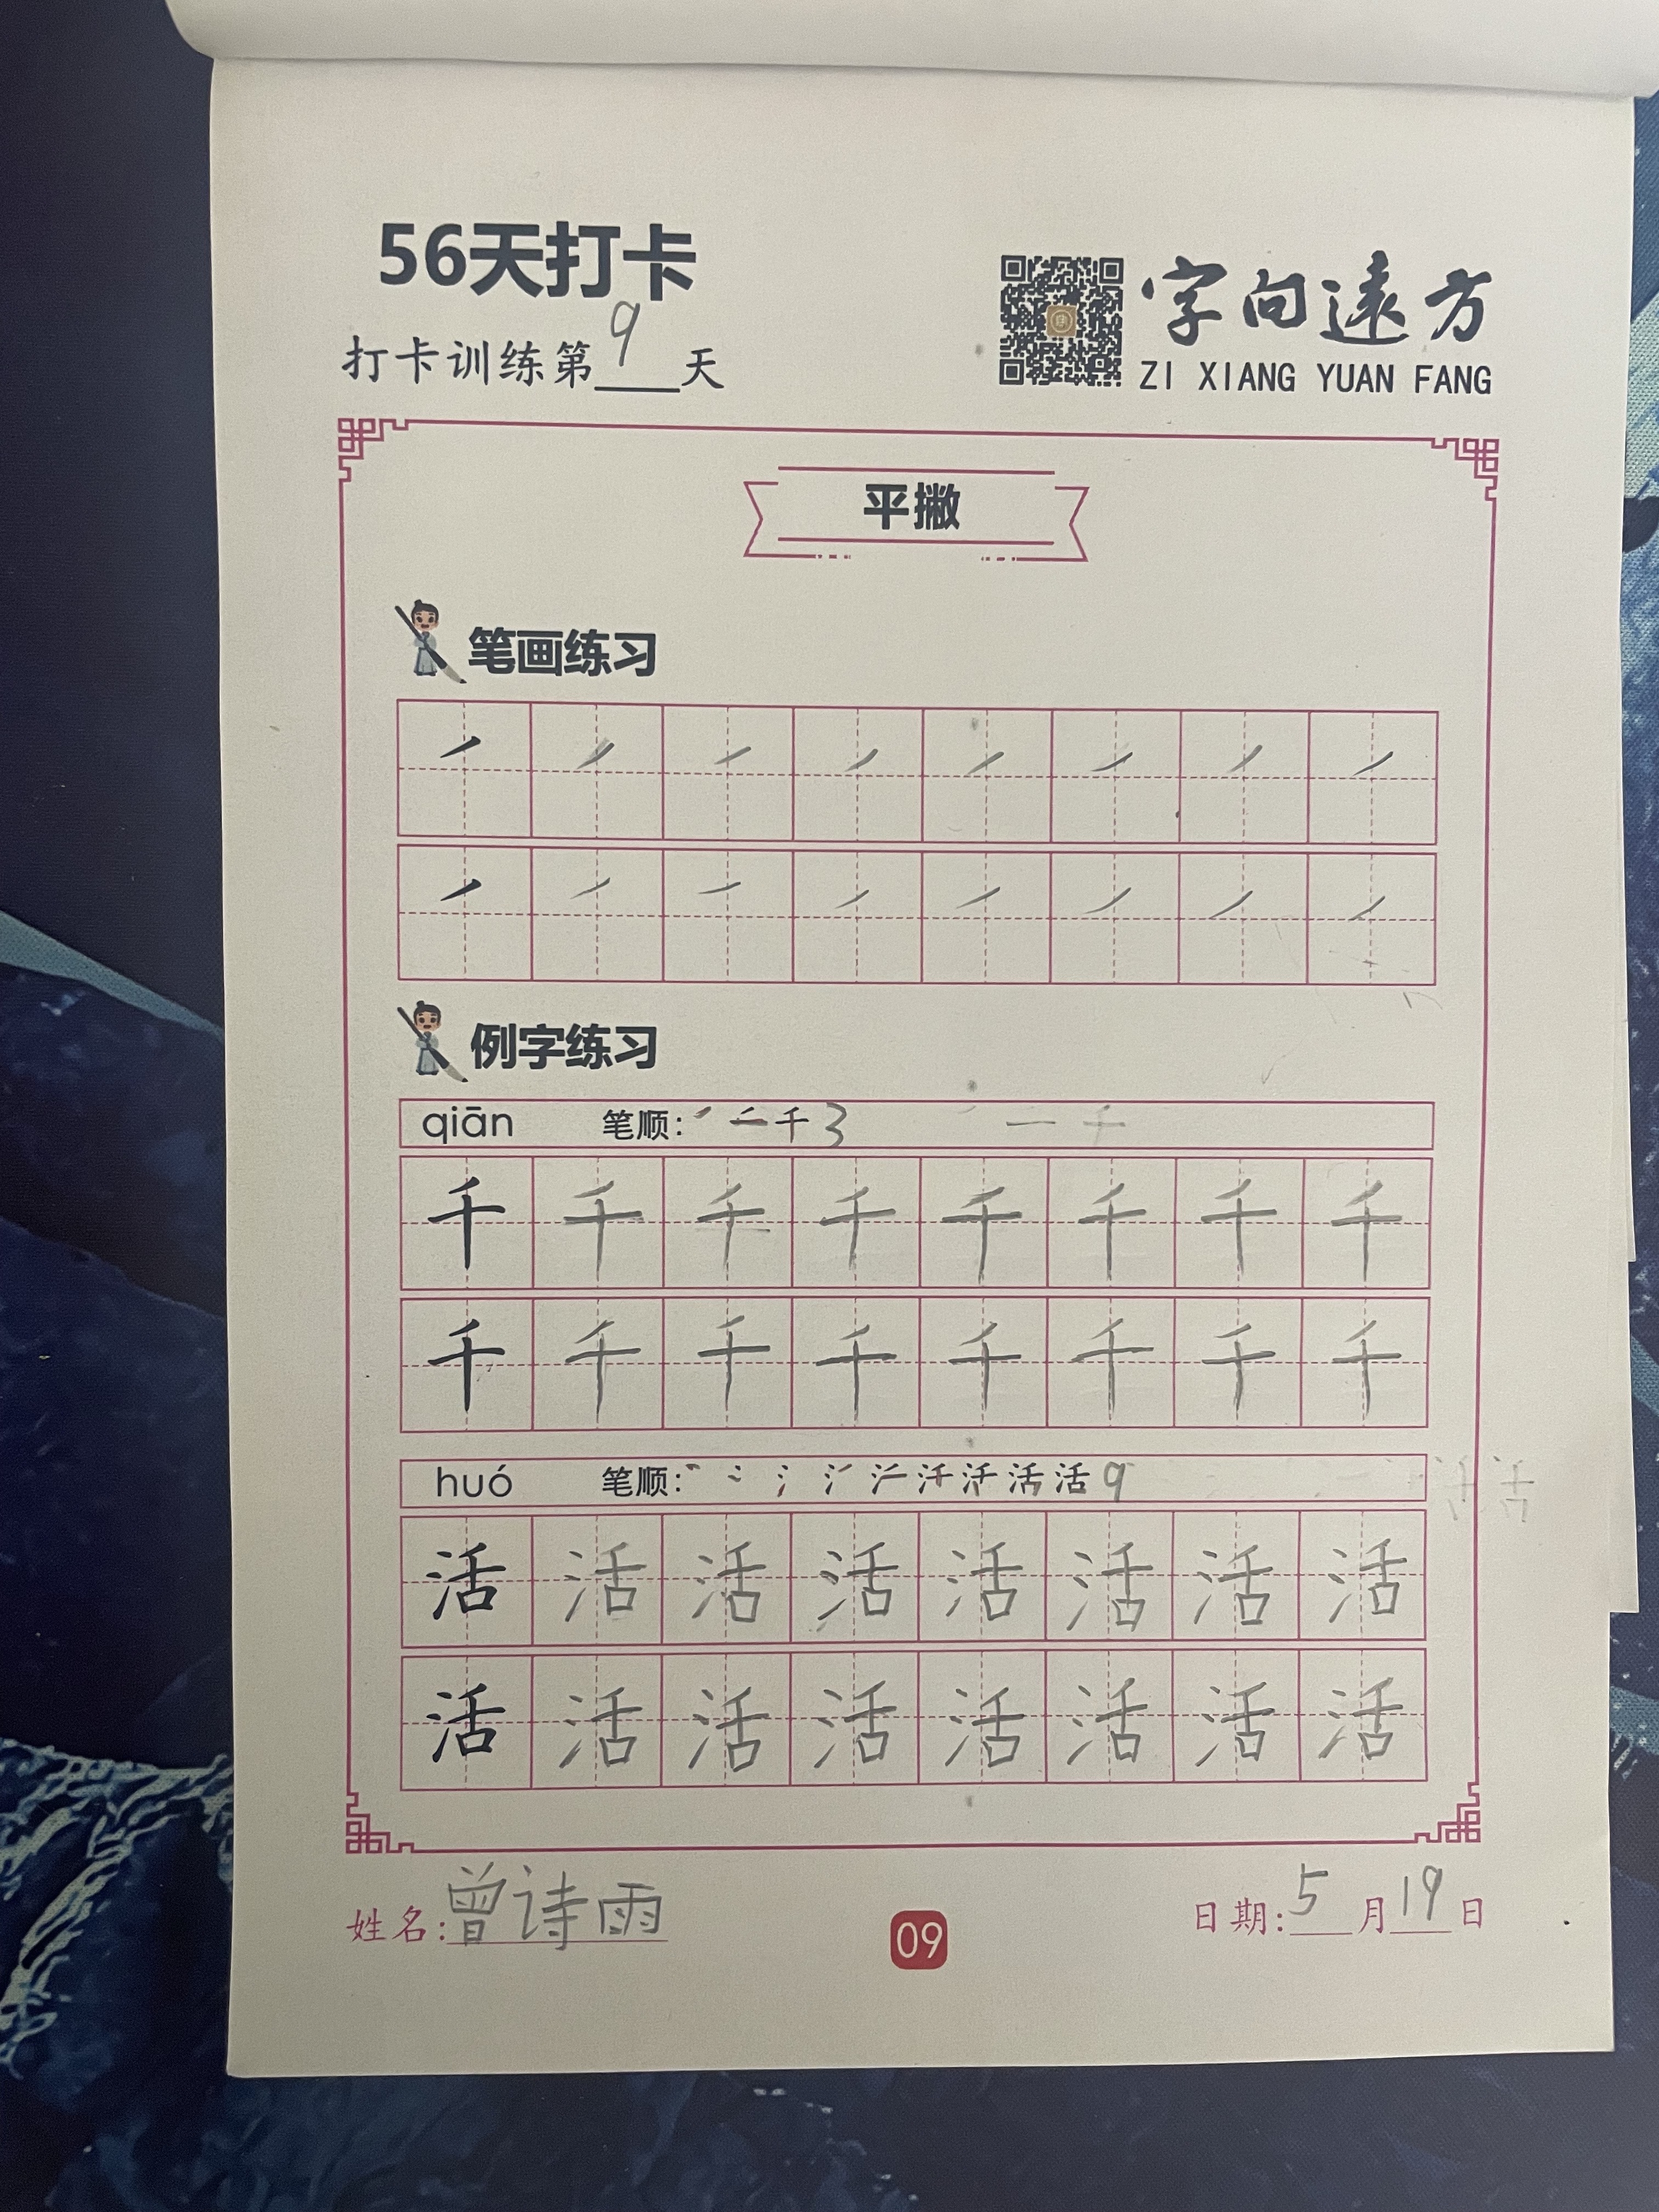 56天打卡
打卡训练第9天
字向遠方
ZI XIANG YUAN FANG
平撇
笔画练习
例字练习
qiān 笔顺: ㇒ 二 千 3 一 千
千 千 千 千 千 千 千 千
千 千 千 千 千 千 千 千
huó 笔顺: 活 9
活 活 活 活 活 活 活 活
活 活 活 活 活 活 活 活
姓名:曾诗雨
09
日期:5月19日